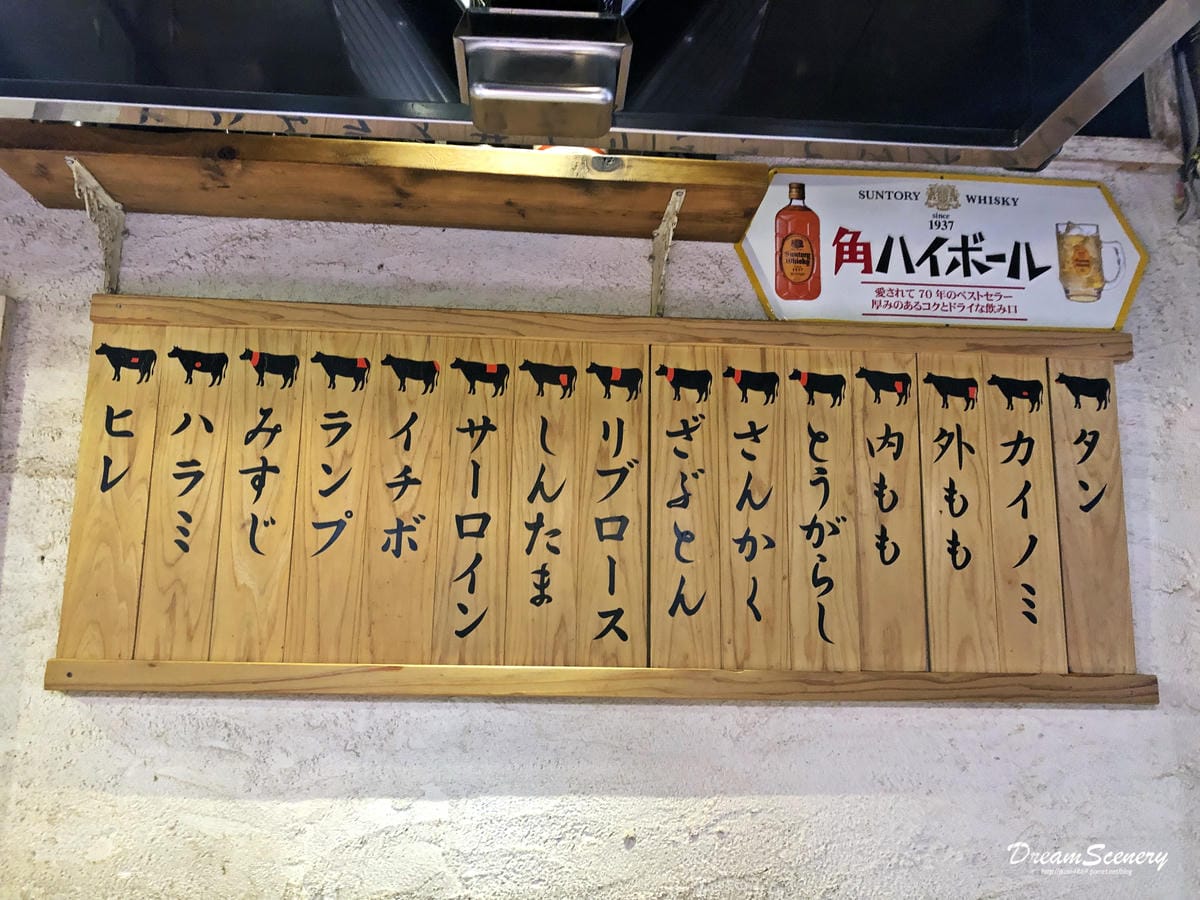 SUNTORY WHISKY
since
1937
角ハイボール
愛されて70年のベストセラー
厚みのあるコクとドライな飲み口
タン
カイノミ
外もも
内もも
とうがらし
さんかく
ざぶとん
リブロース
しんたま
サーロイン
イチボ
ランプ
みすじ
ハラミ
ヒレ
DreamScenery